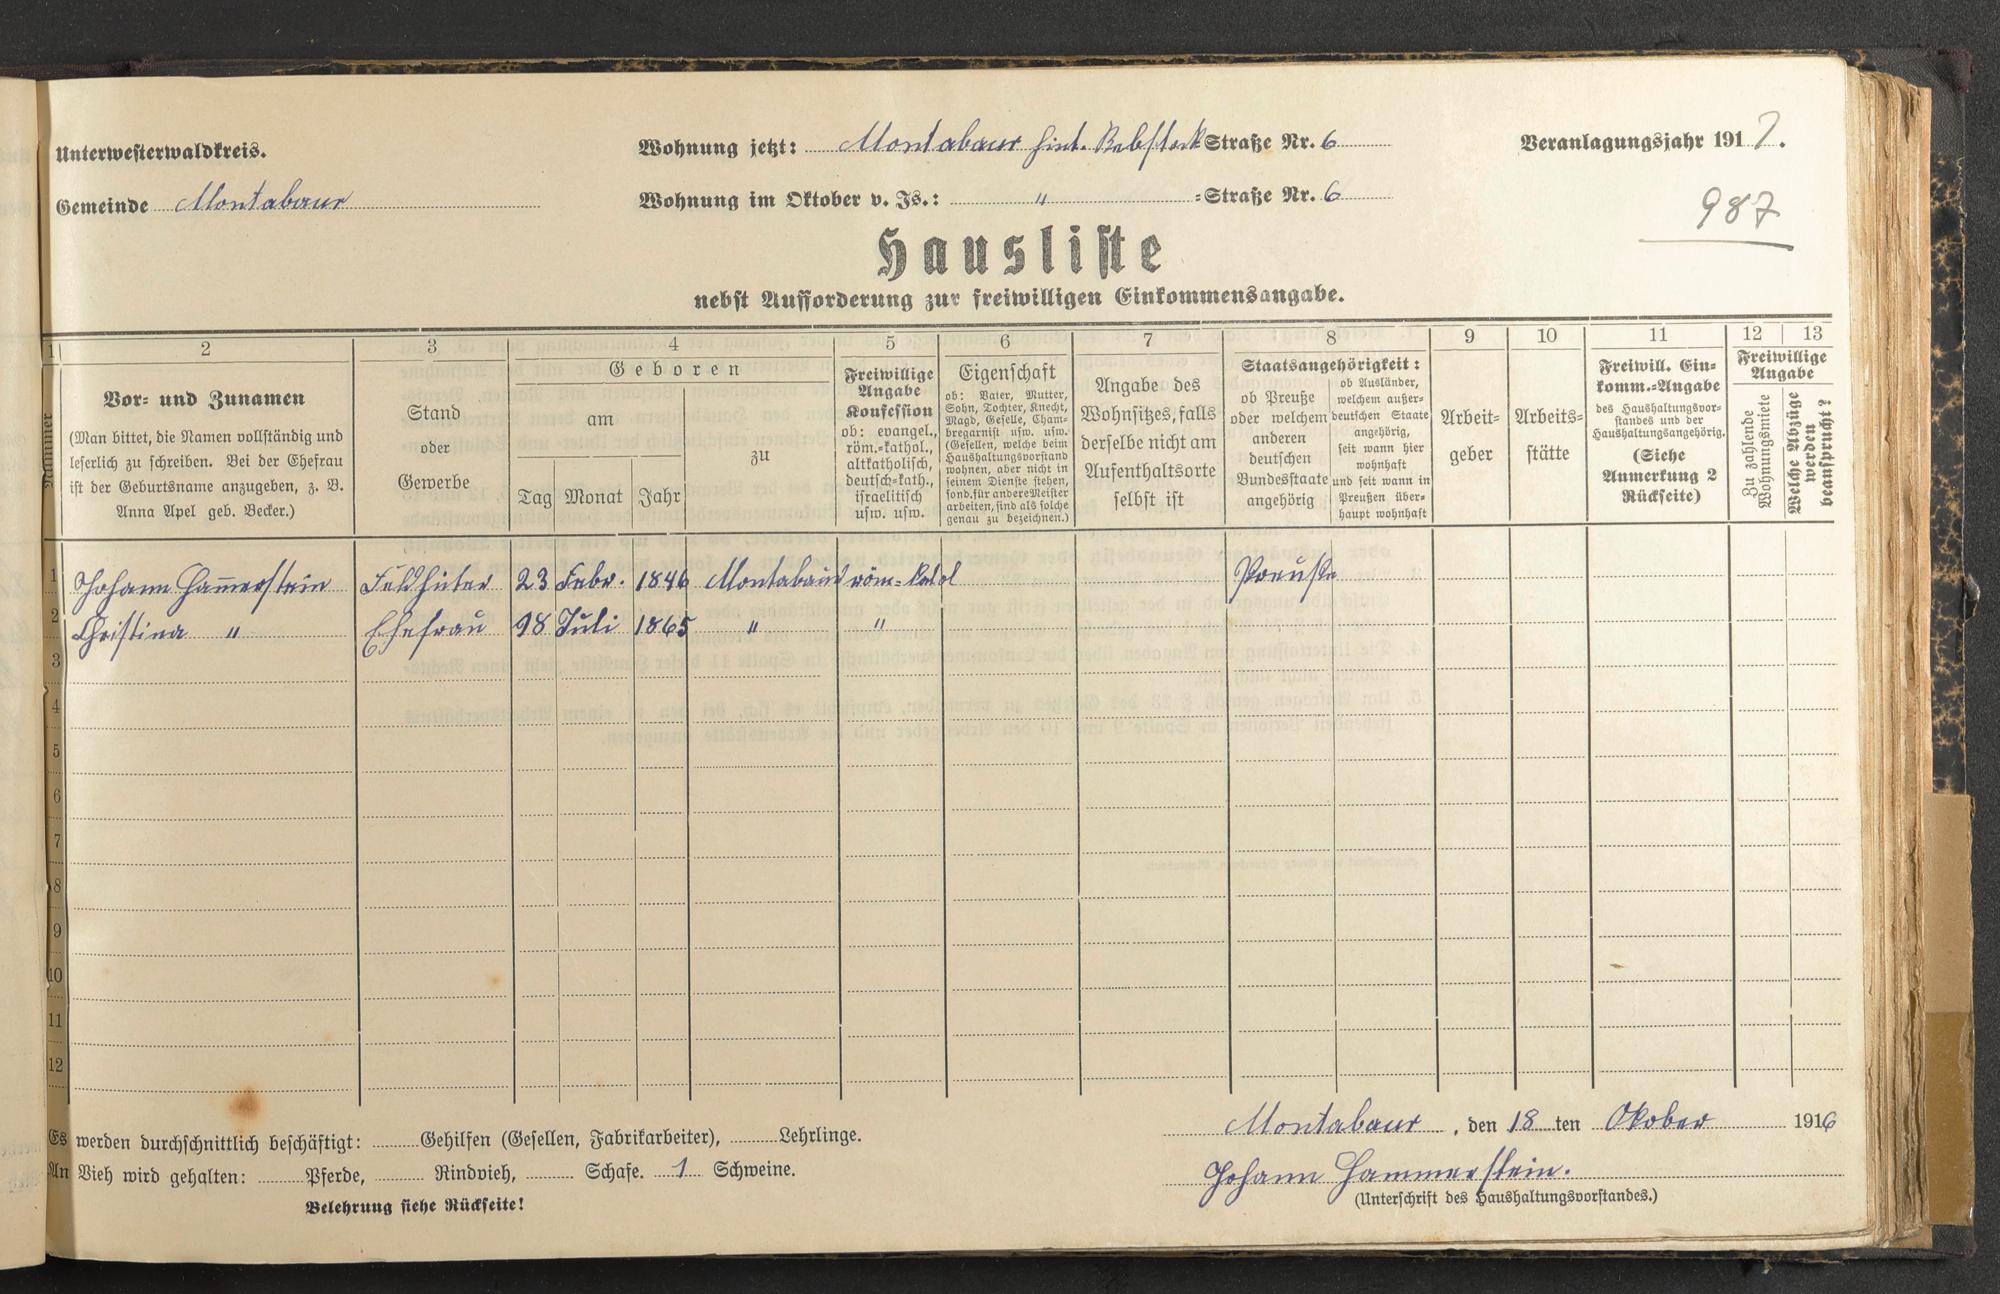 Unterwesterwaldkreis.
Gemeinde Montabaur
Wohnung jetzt: Montabaur hint. Rebstock Straße Nr. 6
Wohnung im Oktober v. Js.: " =Straße Nr. 6
Veranlagungsjahr 1917.
987
Hausliste
nebst Aufforderung zur freiwilligen Einkommensangabe.
1 2 3 4 5 6 7 8 9 10 11 12 13
Nummer
Vor= und Zunamen
(Man bittet, die Namen vollständig und
leserlich zu schreiben. Bei der Ehefrau
ist der Geburtsname anzugeben, z. B.
Anna Apel geb. Becker.)
Stand
oder
Gewerbe
Geboren
am
Tag Monat Jahr
zu
Freiwillige
Angabe
Konfession
ob: evangel.,
röm.=kathol.,
altkatholisch,
deutsch=kath.,
israelitisch
usw. usw.
Eigenschaft
ob: Vater, Mutter,
Sohn, Tochter, Knecht,
Magd, Geselle, Cham=
bregarnist usw. usw.
(Gesellen, welche beim
Haushaltungsvorstand
wohnen, aber nicht in
seinem Dienste stehen,
sond. für andere Meister
arbeiten, sind als solche
genau zu bezeichnen.)
Angabe des
Wohnsitzes, falls
derselbe nicht am
Aufenthaltsorte
selbst ist
Staatsangehörigkeit:
ob Preuße
oder welchem
anderen
deutschen
Bundesstaate
angehörig
ob Ausländer,
welchem außer=
deutschen Staate
angehörig,
seit wann hier
wohnhaft
und seit wann in
Preußen über=
haupt wohnhaft
Arbeit=
geber
Arbeits=
stätte
Freiwill. Ein=
komm.=Angabe
des Haushaltungsvor=
standes und der
Haushaltungsangehörig.
(Siehe
Anmerkung 2
Rückseite)
Freiwillige
Angabe
Zu zahlende
Wohnungsmiete
Welche Abzüge
werden
beansprucht?
1 Johann Ham̄erstein Feldhüter 23 Febr. 1846 Montabaur röm=kathol Preuße
2 Christina " Ehefrau 18 Juli 1865 " "
3
4
5
6
7
8
9
10
11
12
Es werden durchschnittlich beschäftigt: Gehilfen (Gesellen, Fabrikarbeiter), Lehrlinge.
An Vieh wird gehalten: Pferde, Rindvieh, Schafe. 1 Schweine.
Belehrung siehe Rückseite!
Montabaur, den 18 ten Okober 1916
Johann Hammerstein.
(Unterschrift des Haushaltungsvorstandes.)